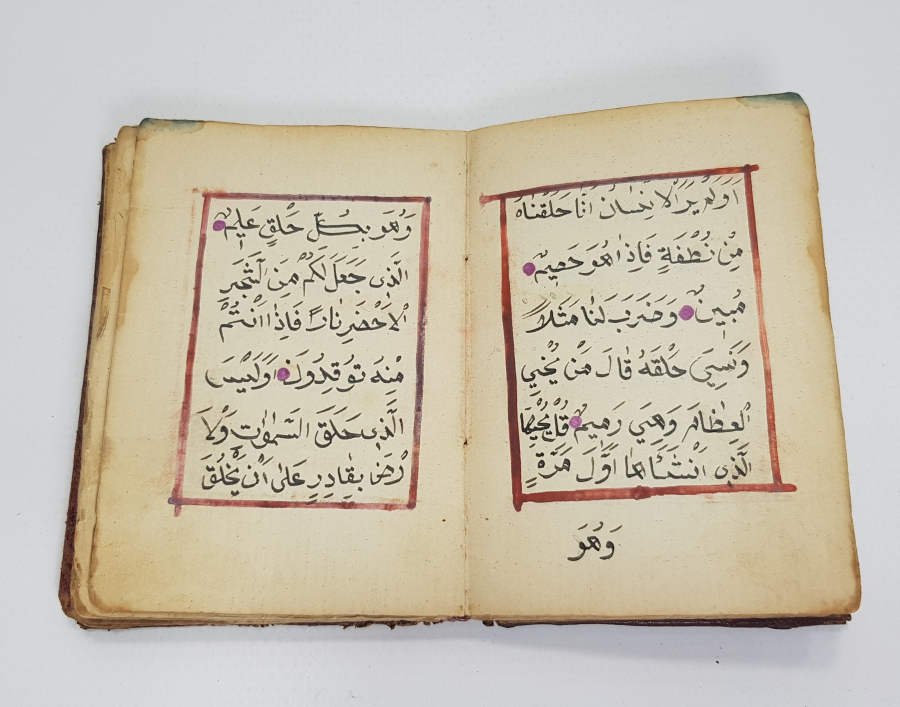 اَوَلَمْ يَرَ الْاِنْسَانُ اَنَّا خَلَقْنَاهُ
مِنْ نُطْفَةٍ فَاِذَا هُوَ خَصِيمٌ
مُبِينٌ وَضَرَبَ لَنَا مَثَلاً
وَنَسِيَ خَلْقَهُ قَالَ مَنْ يُحْيِي
الْعِظَامَ وَهِيَ رَمِيمٌ قُلْ يُحْيِيهَا
الَّذِي اَنْشَاَهَا اَوَّلَ مَرَّةٍ
وَهُوَ
وَهُوَ بِكُلِّ خَلْقٍ عَلِيمٌ
الَّذِي جَعَلَ لَكُمْ مِنَ الشَّجَرِ
الْاَخْضَرِ نَارًا فَاِذَا اَنْتُمْ
مِنْهُ تُوقِدُونَ اَوَلَيْسَ
الَّذِي خَلَقَ السَّمٰوَاتِ وَالْاَ
رْضَ بِقَادِرٍ عَلٰى اَنْ يَخْلُقَ